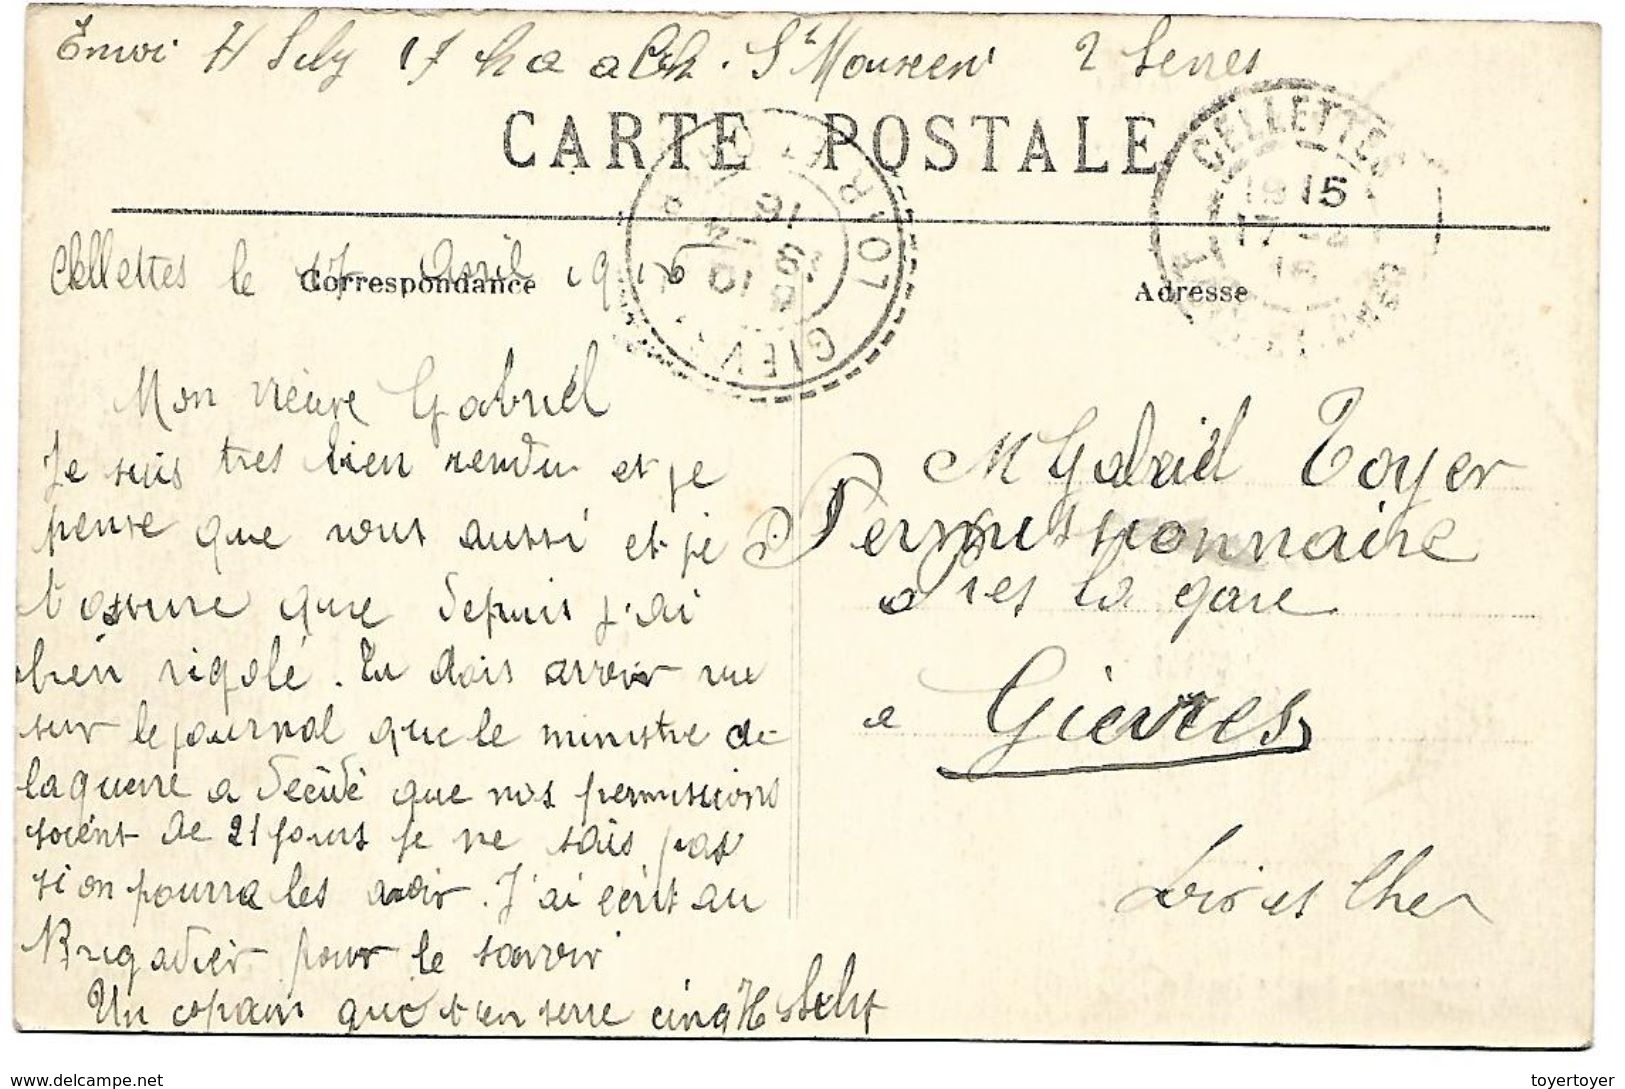 Envoi H Sely 17 St Maixent 2 Sevres
CARTE POSTALE
CELLETTES
15
17
16
LOIR
GIEV
16
Cellettes le 17 Avril 1916
Correspondance
Adresse
Mon vieux Gabriel
Je suis tres bien rendu et je
pense que vous aussi et je
t'assure que depuis j'ai
bien rigolé. Tu dois avoir vue
sur le journal que le ministre de
la guerre a décidé que nos permissions
soient de 21 jours je ne sais pas
si on pourra les avoir. J'ai ecrit au
Brigadier pour le savoir
Un copain qui t'en serre cinq H Sely
M Gabriel Toyer
Permissionnaire
Pres la gare
a Gievres
Loir et Cher
www.delcampe.net
toyertoyer